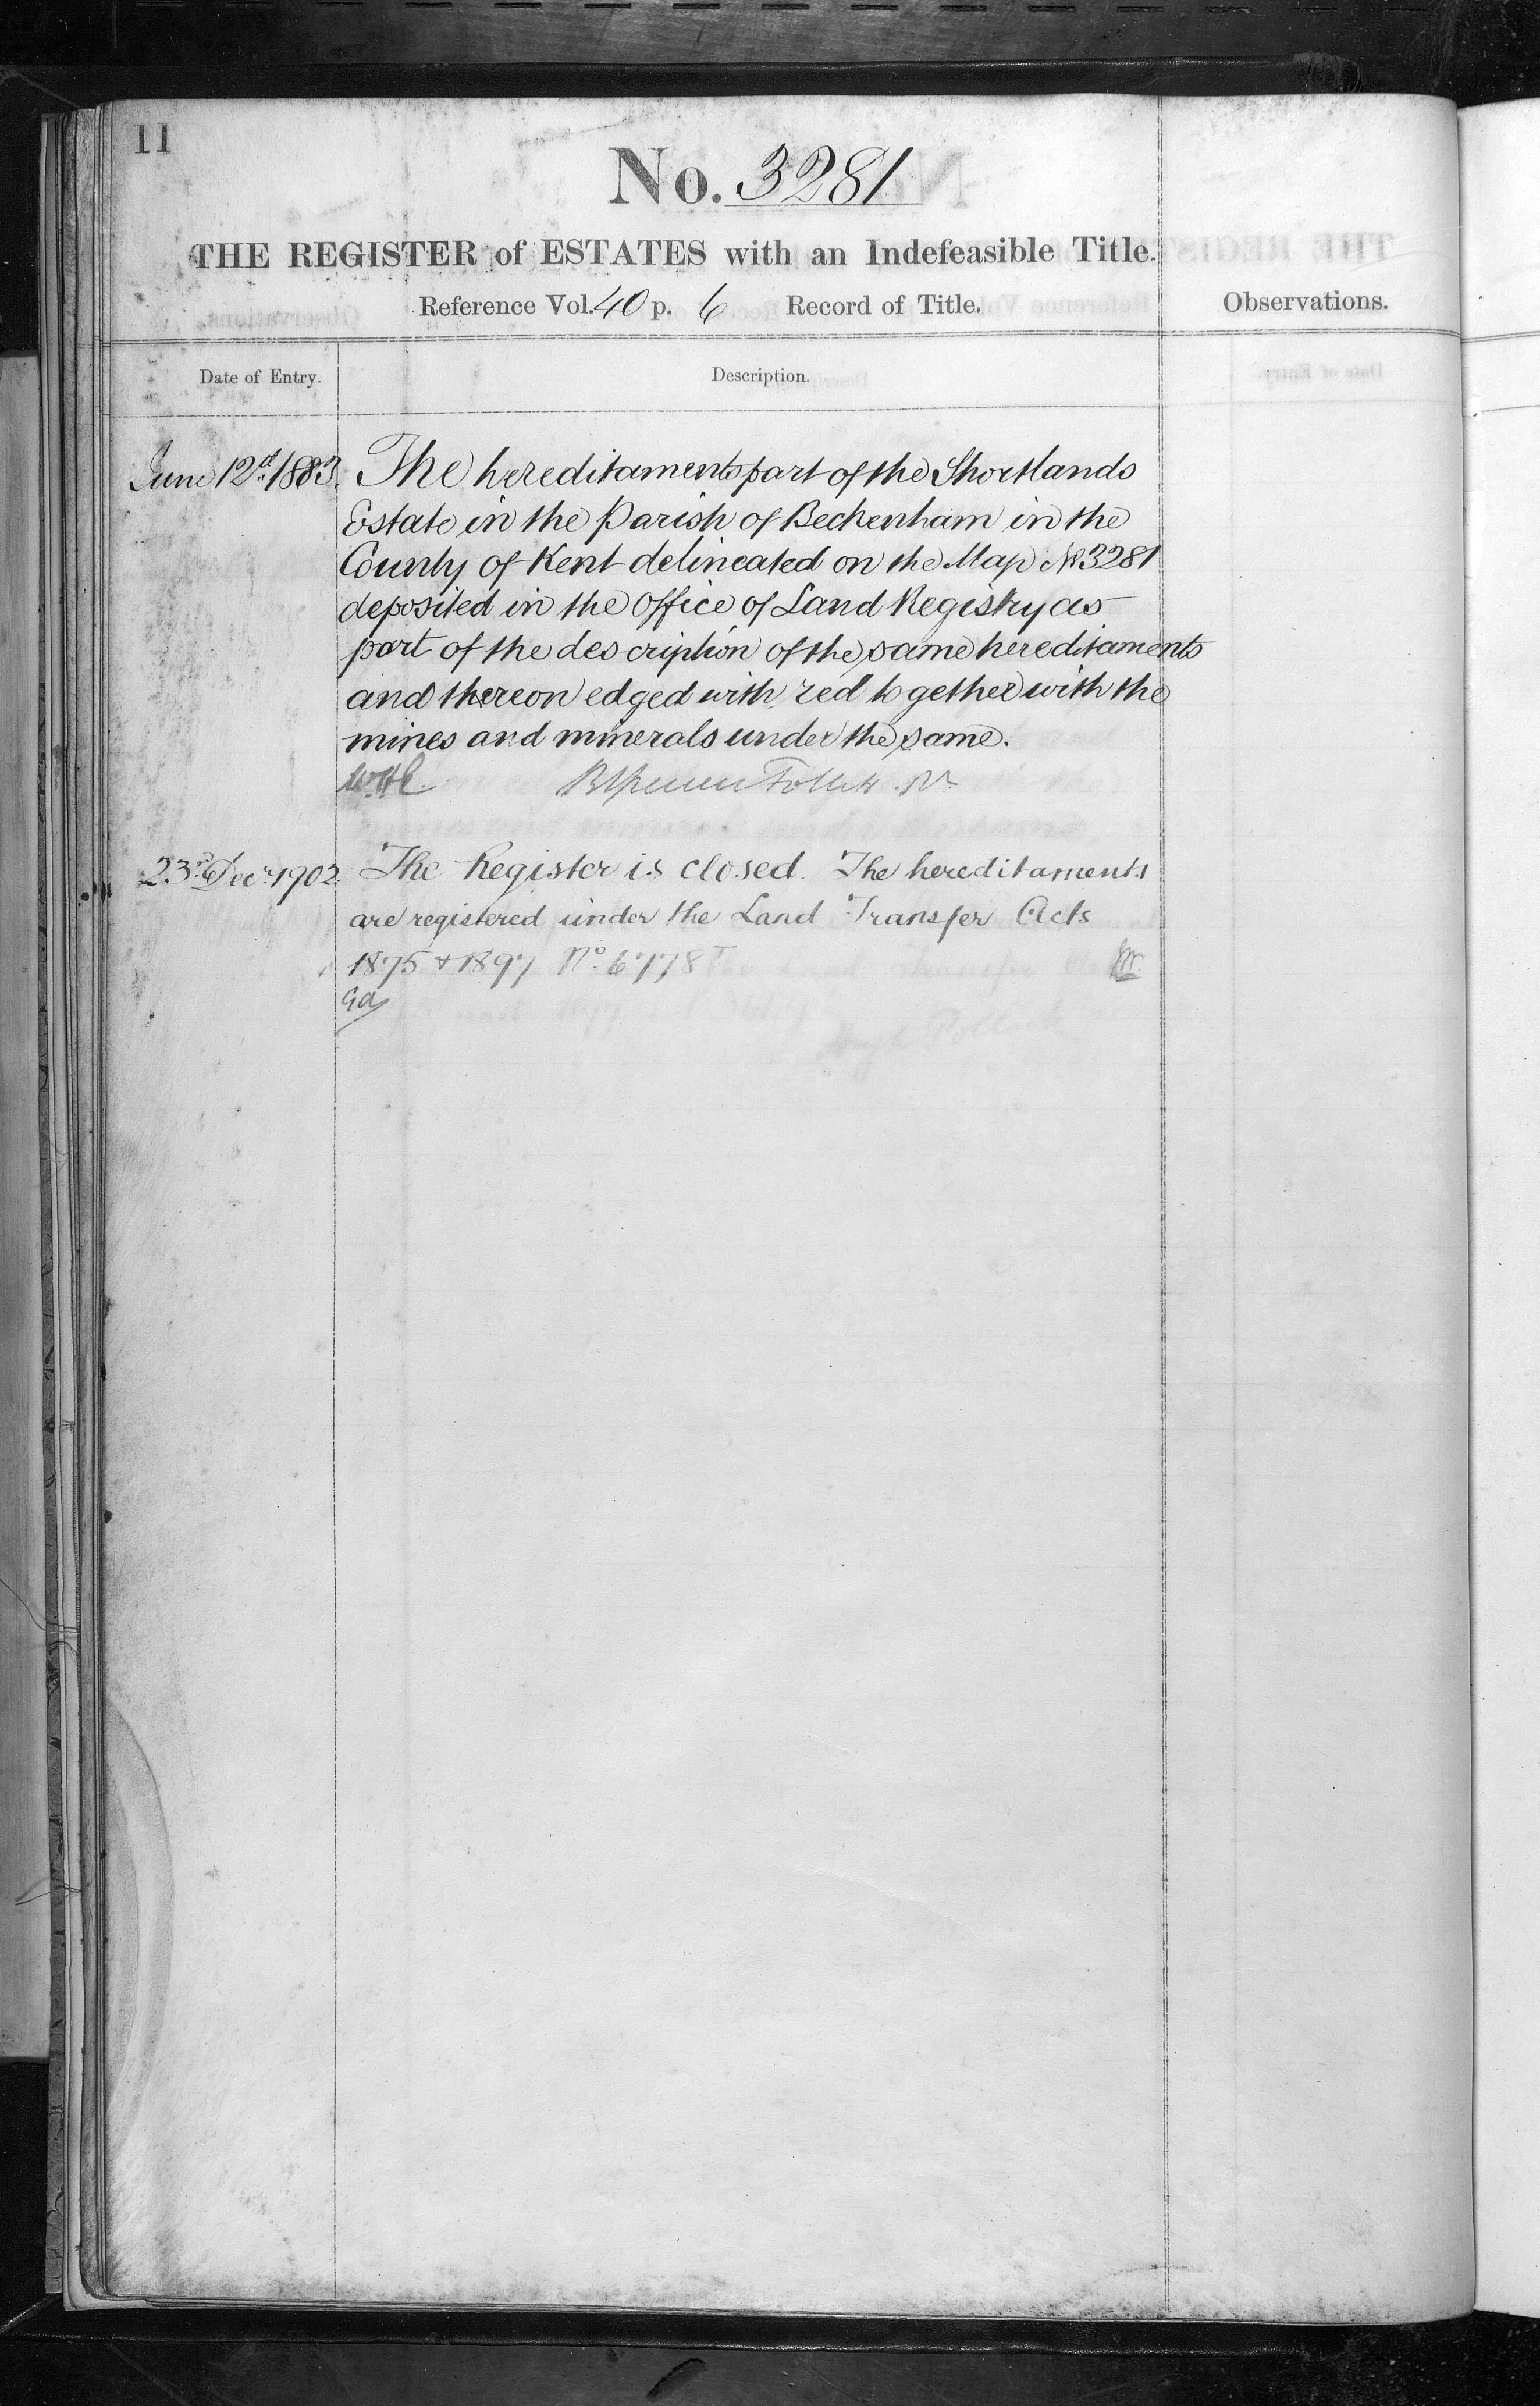 11
No. 3281
THE REGISTER of ESTATES with an Indefeasible Title.
Reference Vol. 40 p. 6 Record of Title.
Observations.
Date of Entry.
Description.
June 12th 1883. The hereditaments part of the Shortlands
Estate in the Parish of Beckenham in the
County of Kent delineated on the Map No 3281
deposited in the Office of Land Registry as
part of the description of the same hereditaments
and thereon edged with red together with the
mines and minerals under the same.
23rd Decr 1902. The Register is closed. The hereditaments
are registered under the Land Transfer Acts
1875 & 1897 No. 6778